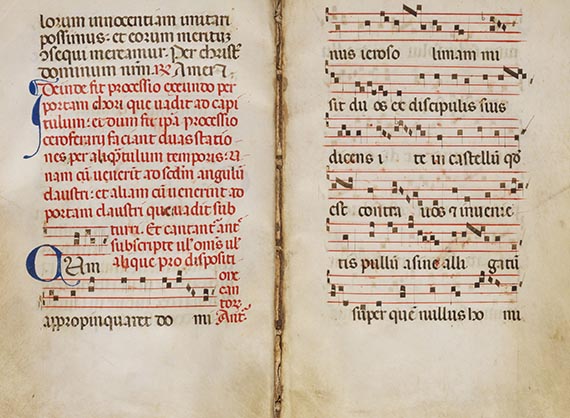 lorum innocentiam imitari
possimus: et eorum meritis
osequi mereamur. Per christũ
dominum nrm̃. ℟ Amen.
Deinde fit processio exeundo per
portam chori que uadit ad capi
tulum: et dum fit ip̃a processio
ceroferarij faciant duas statio
nes, per aliq̃ntulum temporis: u
nam cũ uenerit ad sedm̃ angulũ
claustri: et aliam cũ uenerint ad
portam claustri que uadit sub
turri. Et cantant᷑ ant̃e
subscripte ul̃ om̃is ul̃
Cum
alique pro dispositi
oñe
can
appropinquaret do mi
tor. Ant̃.
nus ieroso limam mi
sit du os ex discipulis suis
dicens i te in castellũ qd̃
est contra uos et inuenie
tis pullũ asine alli gatũ
super quẽ nullus ho mi